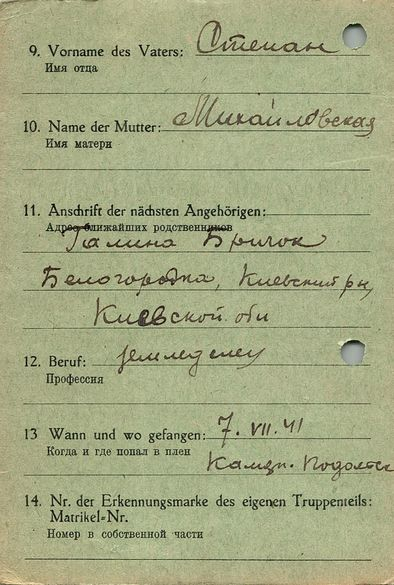 9. Vorname des Vaters: Степан
Имя отца
10. Name der Mutter: Михайловская
Имя матери
11. Anschrift der nächsten Angehörigen:
Адрес ближайших родственников
Галина Бричок
Белогородка, Киевский рн,
Киевской обл
12. Beruf: земледелец
Профессия
13 Wann und wo gefangen: 7. VII. 41
Когда и где попал в плен
Камян. Подольск
14. Nr. der Erkennungsmarke des eigenen Truppenteils:
Matrikel-Nr.
Номер в собственной части